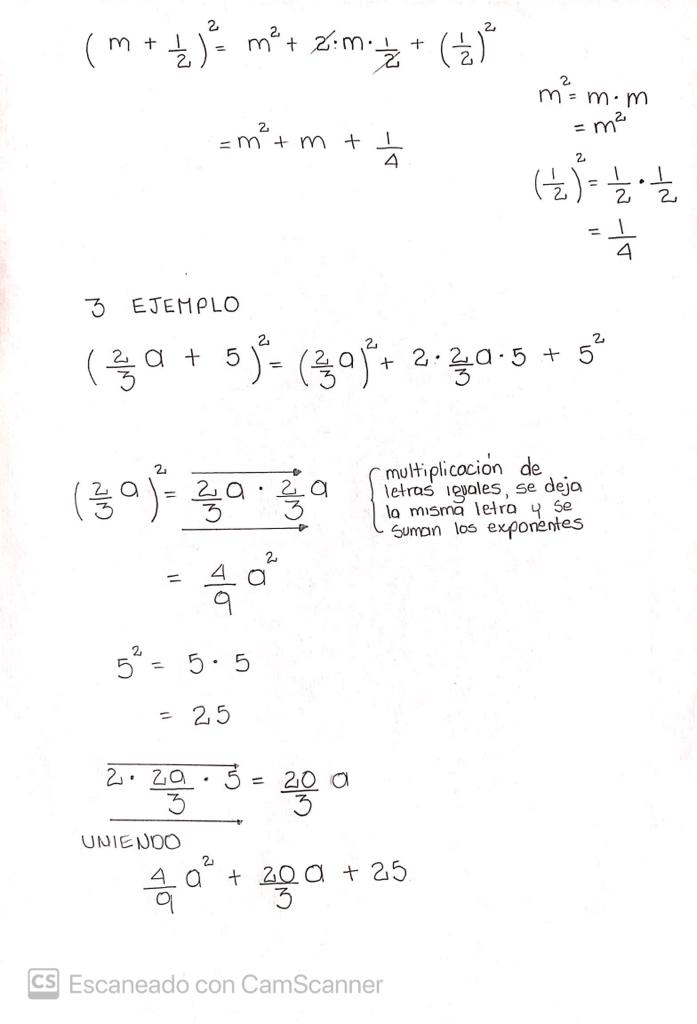 (m + 1/2)² = m² + 2·m·1/2 + (1/2)²
m² = m·m
= m²
= m² + m + 1/4
(1/2)² = 1/2 · 1/2
= 1/4
3 EJEMPLO
(2/3 a + 5)² = (2/3 a)² + 2·2/3 a·5 + 5²
(2/3 a)² = 2/3 a · 2/3 a
multiplicación de
letras iguales, se deja
la misma letra y se
suman los exponentes
= 4/9 a²
5² = 5·5
= 25
2 · 2a/3 · 5 = 20/3 a
UNIENDO
4/9 a² + 20/3 a + 25
CS Escaneado con CamScanner